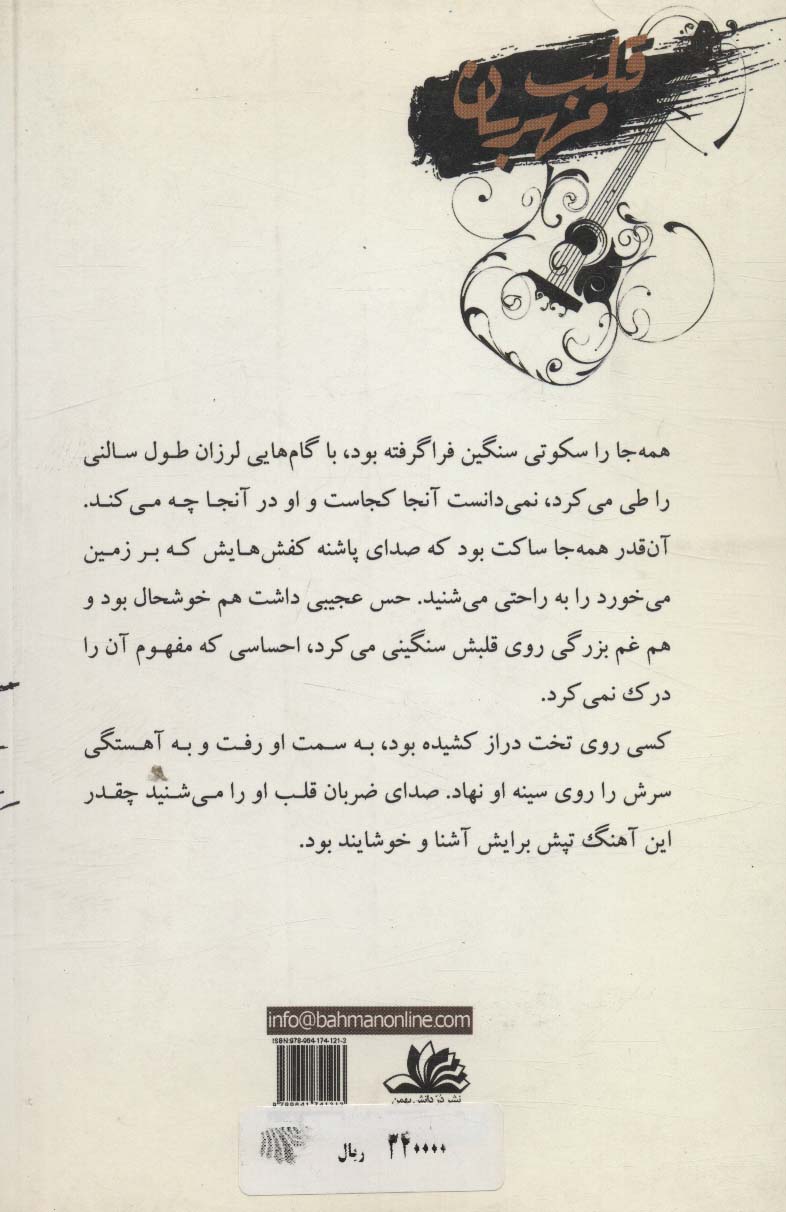 قلب
مهربان
همه‌جا را سکوتی سنگین فراگرفته بود، با گام‌هایی لرزان طول سالنی
را طی می‌کرد، نمی‌دانست آنجا کجاست و او در آنجا چه می‌کند.
آن‌قدر همه‌جا ساکت بود که صدای پاشنه کفش‌هایش که بر زمین
می‌خورد را به راحتی می‌شنید. حس عجیبی داشت هم خوشحال بود و
هم غم بزرگی روی قلبش سنگینی می‌کرد، احساسی که مفهوم آن را
درک نمی‌کرد.
کسی روی تخت دراز کشیده بود، به سمت او رفت و به آهستگی
سرش را روی سینه او نهاد. صدای ضربان قلب او را می‌شنید چقدر
این آهنگ تپش برایش آشنا و خوشایند بود.
info@bahmanonline.com
ISBN:978-964-174-121-3
نشر دُرّ دانش بهمن
9 789641 741213
۳۲۰۰۰۰ ریال